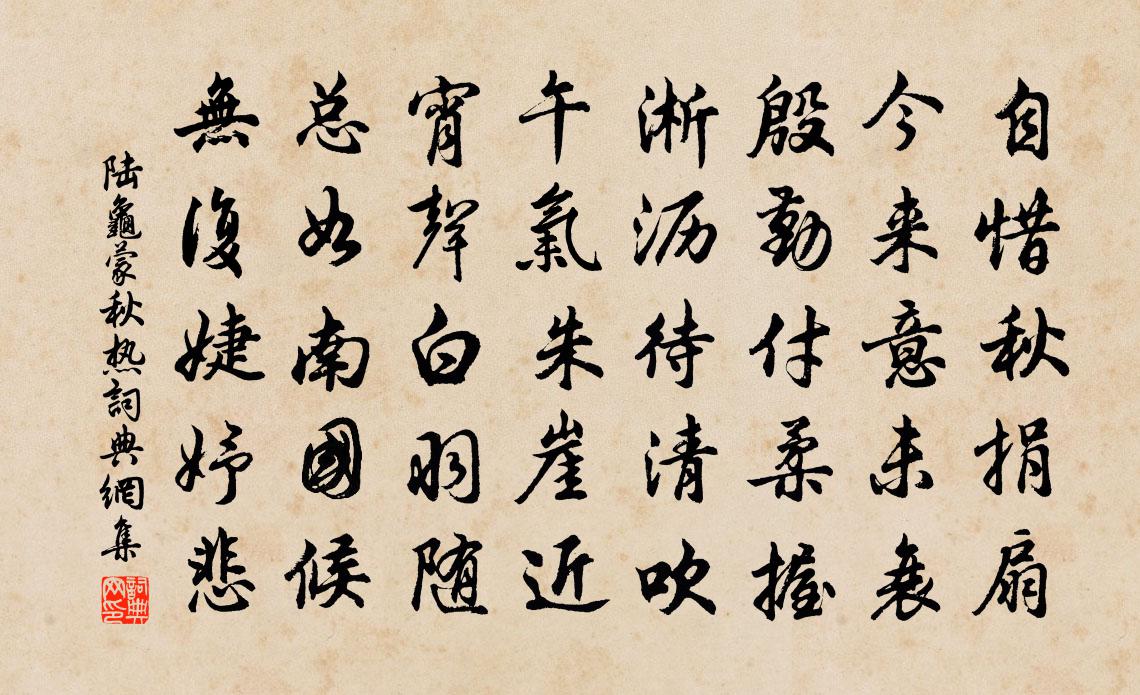 自惜秋捐扇
今来意未衰
殷勤付柔握
淅沥待清吹
午氣朱崖近
宵聲白羽随
总如南國候
無復婕妤悲
陆龜蒙秋热詞典網集
詞典網印